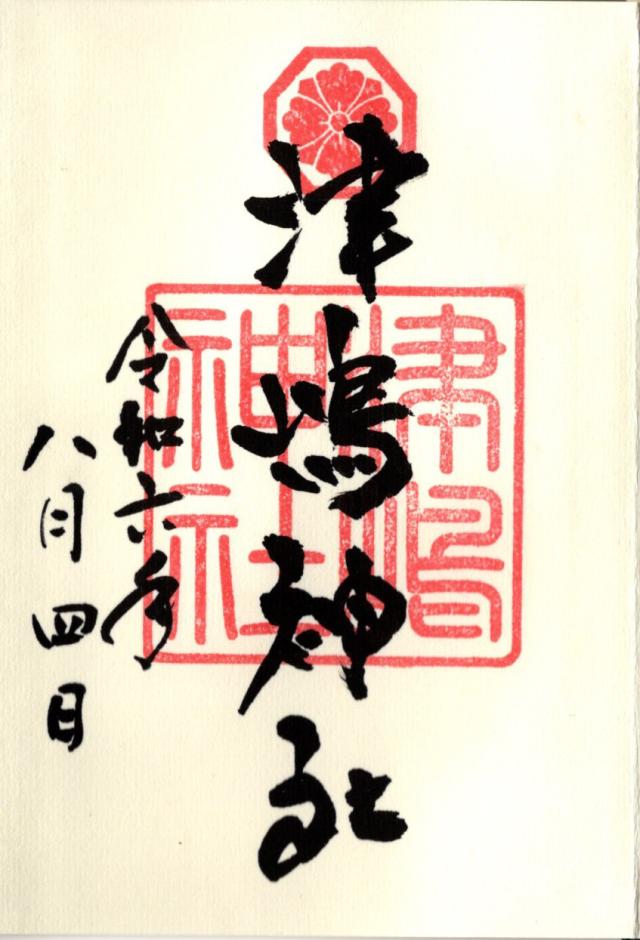 津嶋神社
令和六年
八月四日
津嶋
神社